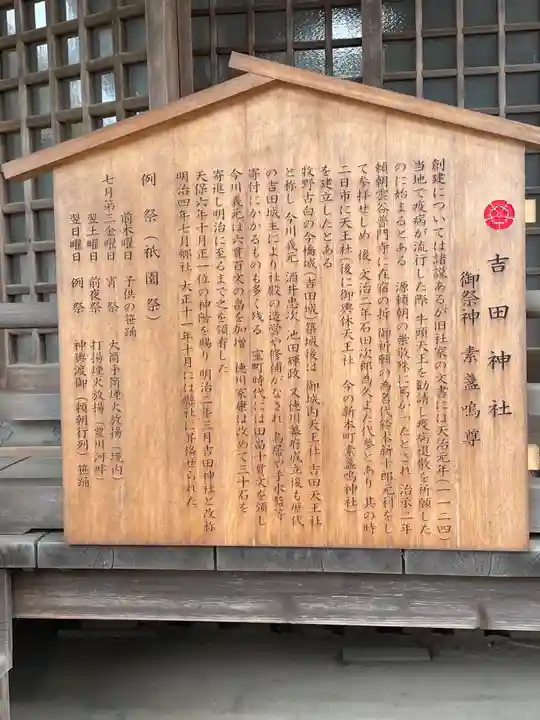 吉田神社
御祭神 素盞嗚尊
創建については諸説あるが旧社家の文書には天治元年(一一二四)
当地で疫病が流行した際 牛頭天王を勧請し疫病退散を祈願した
のに始まるとある 源頼朝の崇敬殊に篤かったとされ 治承二年
頼朝雲谷普門寺に在宿の折 御祈願の為名代鈴木新十郎元利をし
て参拝せしめ 後 文治二年石田次郎為久また代参とあり 其の時
二日市に天王社(後に御輿休天王社 今の新本町素盞嗚神社)
を建立したとある
牧野古白の今橋城(吉田城)築城後は 御城内天王社 吉田天王社
と称し 今川義元 酒井忠次 池田輝政 又徳川幕府成立後も歴代
の吉田城主により社殿の造営や修補がなされ 鳥居や手水鉢等
寄付にかかるものも多く残る 室町時代には田畠十貫文を領し
今川義元は六貫百文の畠を加増 徳川家康は改めて三十石を
寄進し明治に至るまで之を領有した
天保六年十月正一位の神階を賜り 明治二年三月吉田神社と改称
明治四年七月郷社 大正十一年十月には縣社に昇格せられた
例祭(祇園祭)
前木曜日 子供の笹踊
七月第三金曜日 宵祭 大筒手筒煙火放揚(境内)
翌土曜日 前夜祭 打揚煙火放揚(豊川河畔)
翌日曜日 例祭 神輿渡御(頼朝行列)笹踊